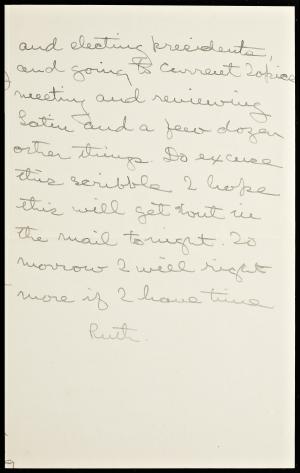 and electing presidents,
and going to Current Topics
meeting and reviewing
Latin and a few dozen
other things. Do excuse
this scribble I hope
this will get out in
the mail tonight. To
morrow I will right
more if I have time
Ruth.